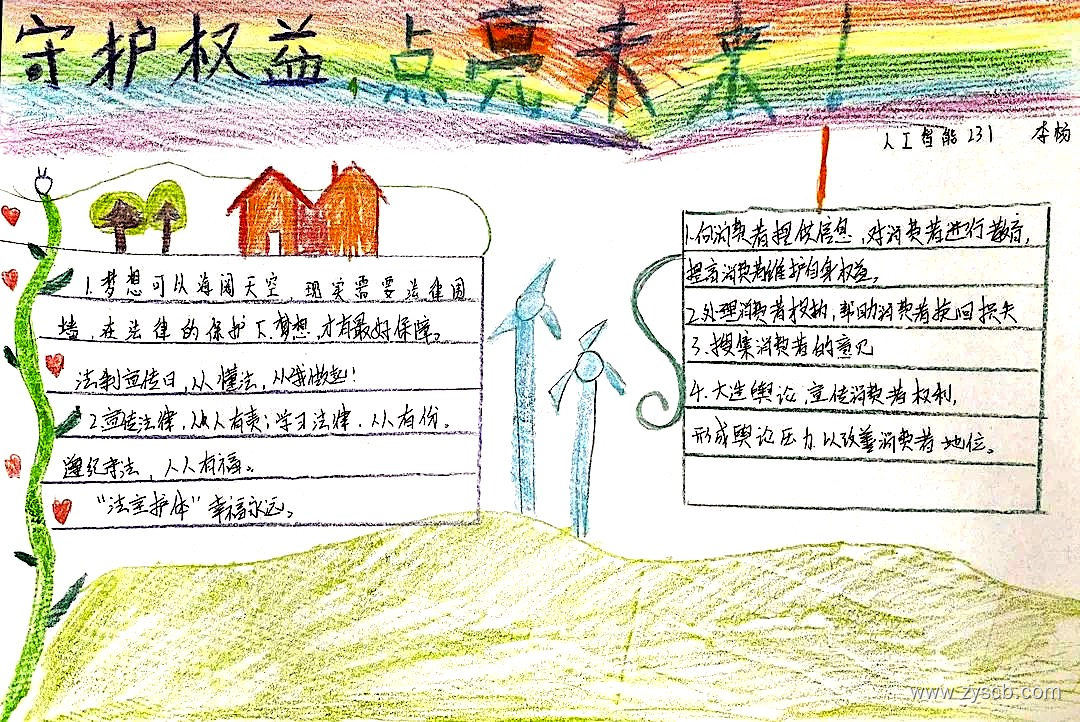 守护权益，点亮未来！
人工智能231 李杨
1.梦想可以海阔天空 现实需要法律围
墙，在法律的保护下，梦想，才有最好保障。
法制宣传日，从懂法，从我做起！
2.宣传法律，人人有责；学习法律，人人有份。
遵纪守法，人人有福。
“法宝护体”幸福永远。
1.向消费者提供信息，对消费者进行教育，
提高消费者维护自身权益。
2.处理消费者投诉，帮助消费者挽回损失
3.搜集消费者的意见
4.大造舆论，宣传消费者权利，
形成舆论压力，以改善消费者地位。
www.zyscb.com